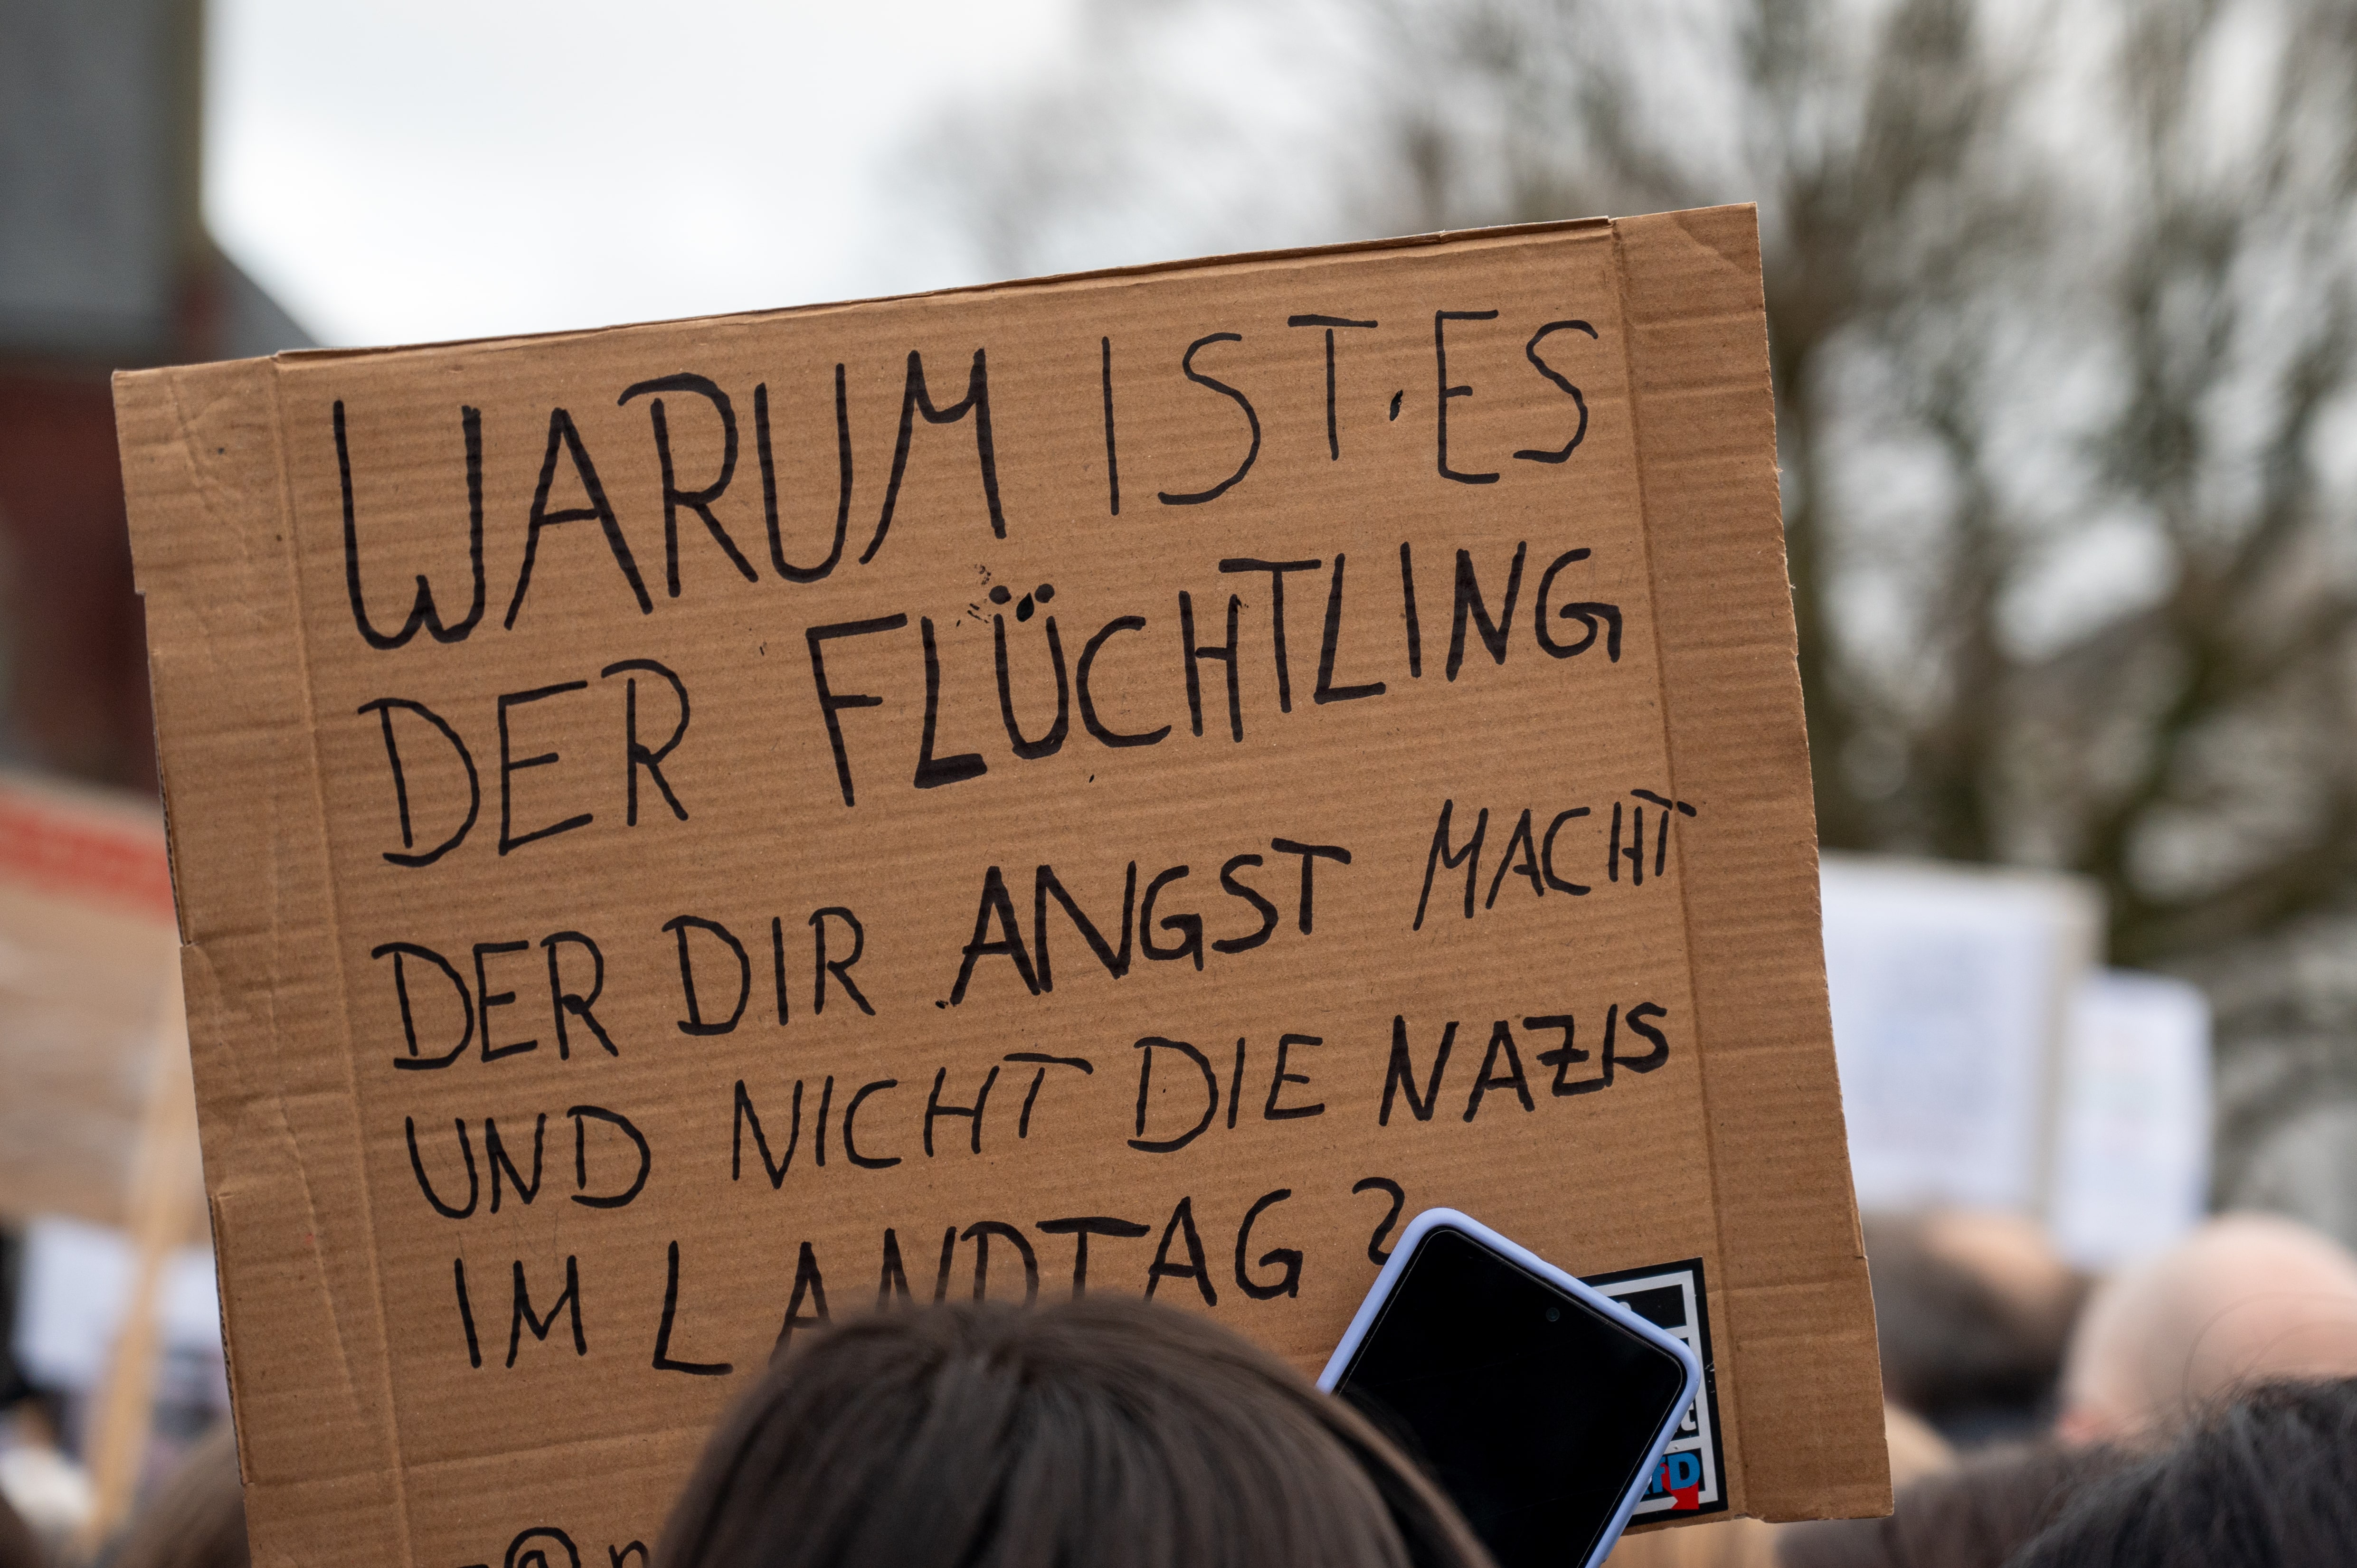 WARUM IST ES
DER FLÜCHTLING
DER DIR ANGST MACHT
UND NICHT DIE NAZIS
IM LANDTAG?